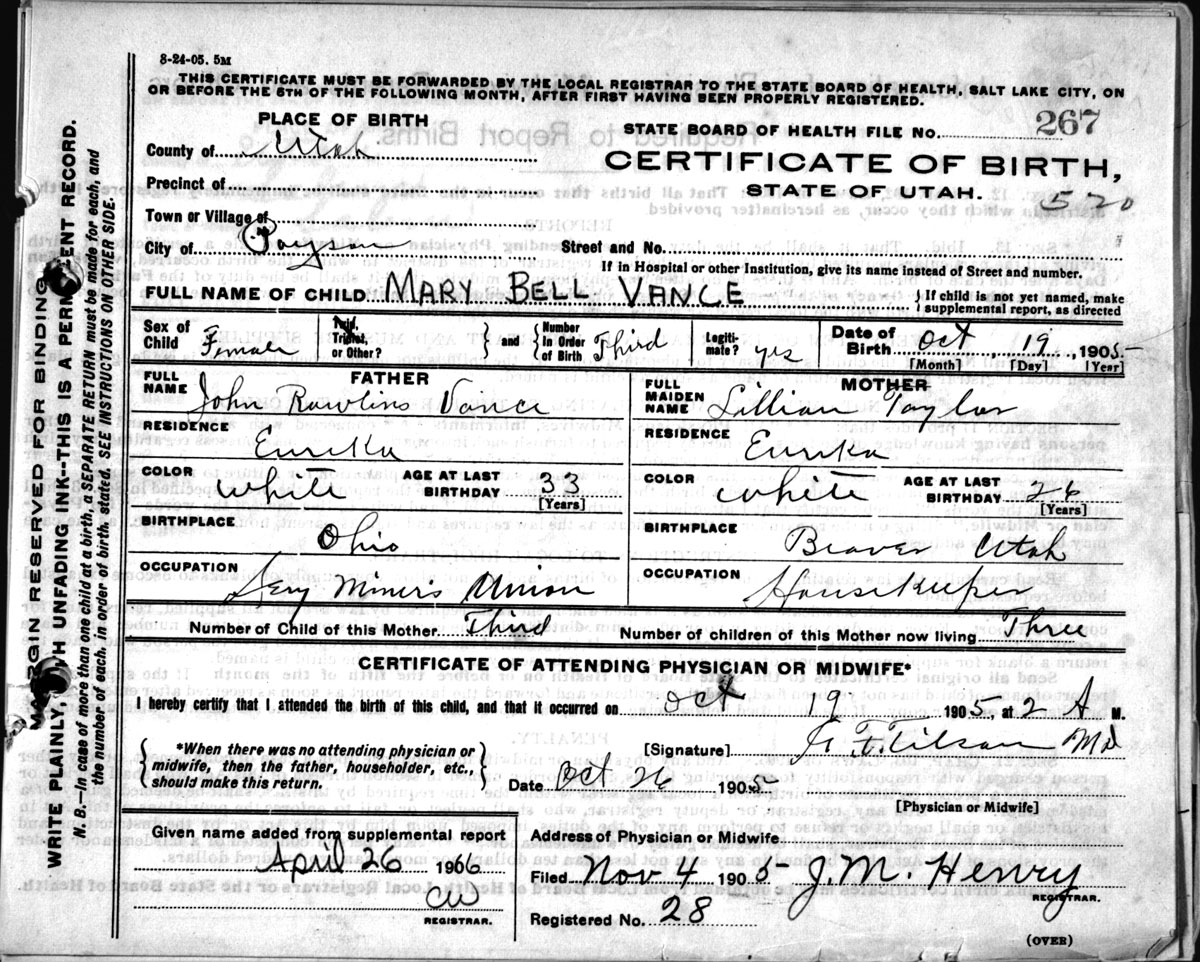 8-24-05. 5M
THIS CERTIFICATE MUST BE FORWARDED BY THE LOCAL REGISTRAR TO THE STATE BOARD OF HEALTH, SALT LAKE CITY, ON
OR BEFORE THE 5TH OF THE FOLLOWING MONTH, AFTER FIRST HAVING BEEN PROPERLY REGISTERED.
PLACE OF BIRTH
STATE BOARD OF HEALTH FILE NO. 267
County of Utah
CERTIFICATE OF BIRTH,
STATE OF UTAH.
520
Precinct of
Town or Village of
City of Payson
Street and No.
If in Hospital or other Institution, give its name instead of Street and number.
FULL NAME OF CHILD MARY BELL VANCE
} If child is not yet named, make
supplemental report, as directed
Sex of Child Female
Twin, Triplet, or Other?
} and { Number in Order of Birth Third
Legiti-mate? yes
Date of Birth Oct 19, 1905
[Month] [Day] [Year]
FATHER
FULL NAME John Rawlins Vance
RESIDENCE Eureka
COLOR White
AGE AT LAST BIRTHDAY 33
[Years]
BIRTHPLACE Ohio
OCCUPATION Secy Miners Union
MOTHER
FULL MAIDEN NAME Lillian Taylor
RESIDENCE Eureka
COLOR White
AGE AT LAST BIRTHDAY 26
[Years]
BIRTHPLACE Beaver Utah
OCCUPATION Housekeeper
Number of Child of this Mother Third
Number of children of this Mother now living Three
CERTIFICATE OF ATTENDING PHYSICIAN OR MIDWIFE*
I hereby certify that I attended the birth of this child, and that it occurred on Oct 19 1905, at 2 A M.
{ *When there was no attending physician or
midwife, then the father, householder, etc.,
should make this return. }
[Signature] Tilson Md
Date Oct 26 1905
[Physician or Midwife]
Given name added from supplemental report
April 26 1906
CW
REGISTRAR.
Address of Physician or Midwife
Filed Nov 4 1905 J.M. Henry
REGISTRAR.
Registered No. 28
(OVER)
MARGIN RESERVED FOR BINDING
WRITE PLAINLY, WITH UNFADING INK--THIS IS A PERMANENT RECORD.
N. B.--In case of more than one child at a birth, a SEPARATE RETURN must be made for each, and
the number of each, in order of birth, stated. SEE INSTRUCTIONS ON OTHER SIDE.